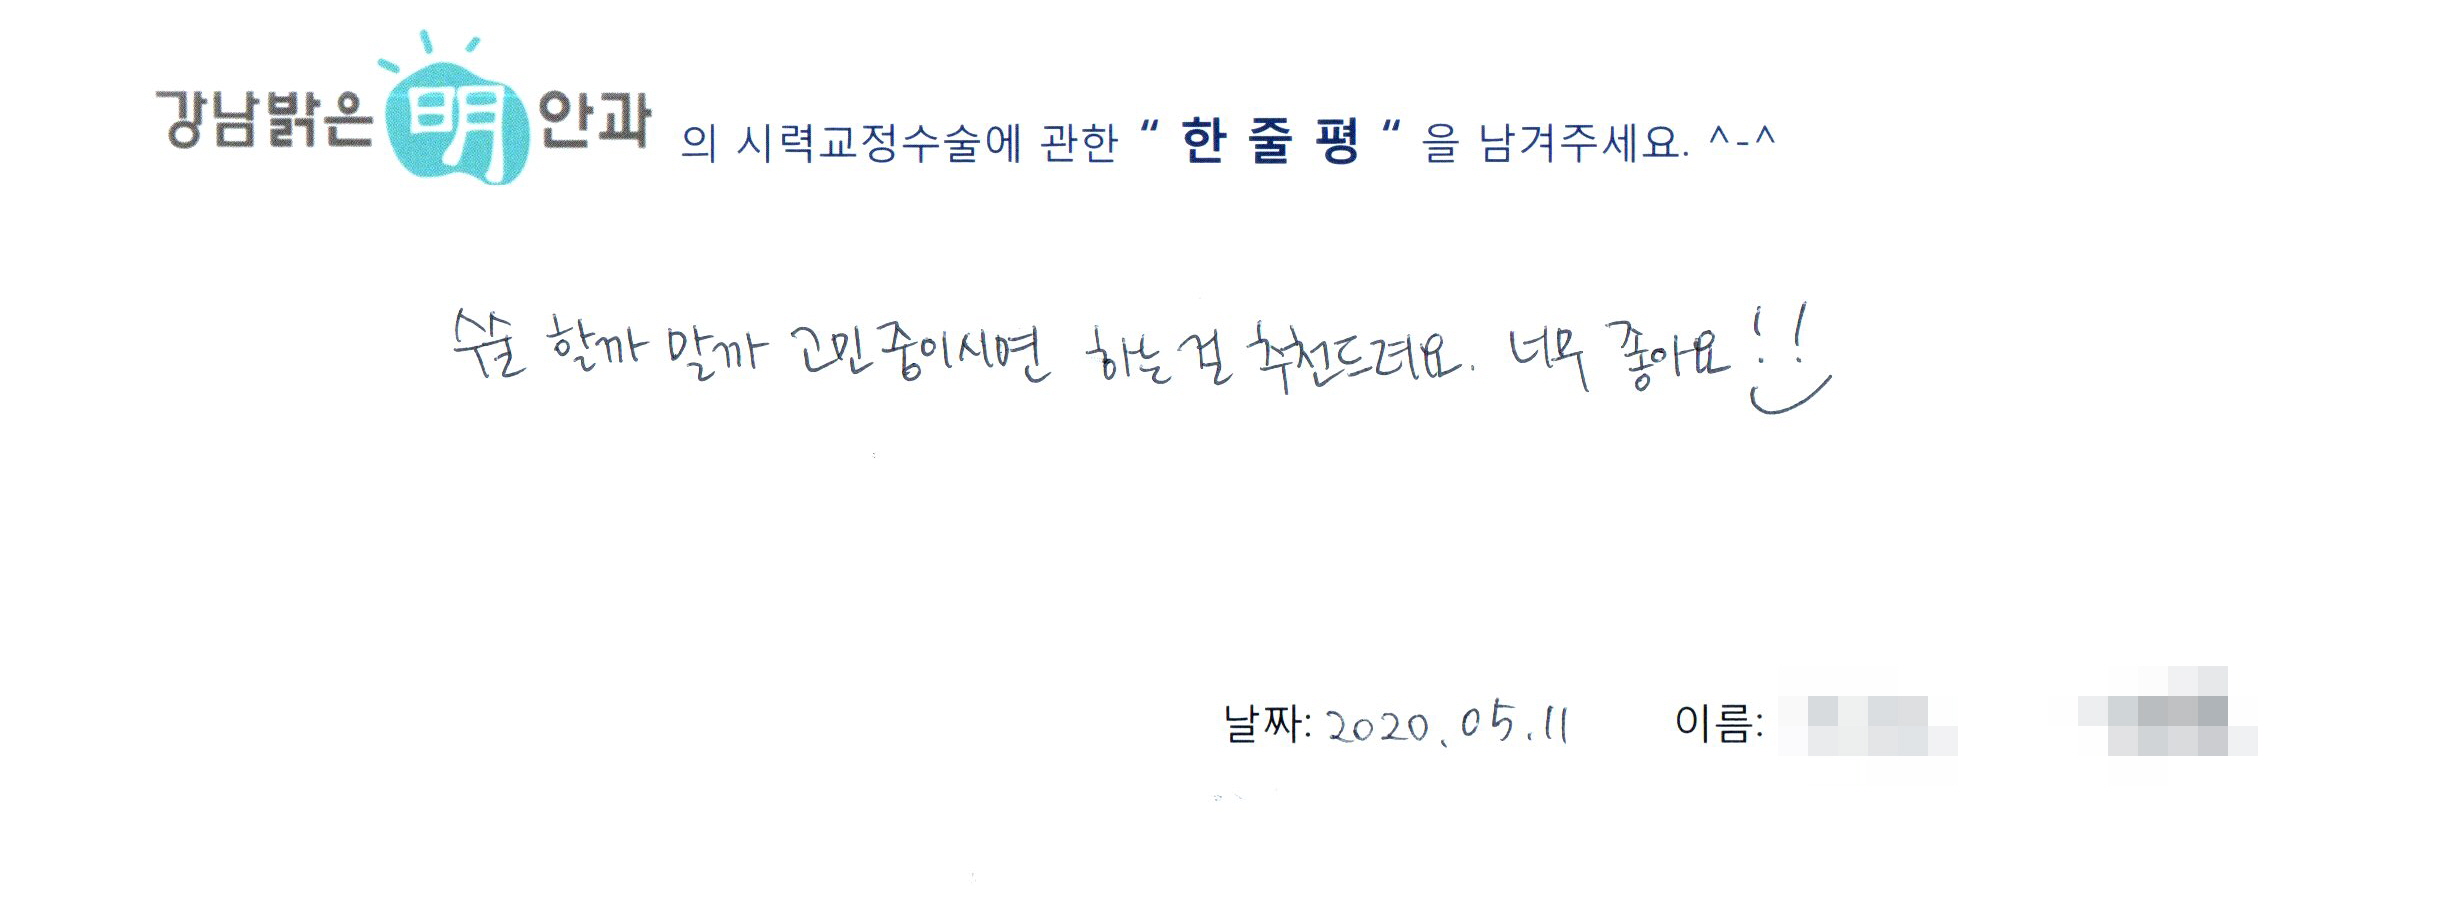 강남밝은 明 안과 의 시력교정수술에 관한 “ 한 줄 평 “ 을 남겨주세요. ^-^
수술 할까 말까 고민중이시면 하는걸 추천드려요. 너무 좋아요!!
날짜: 2020.05.11 이름: